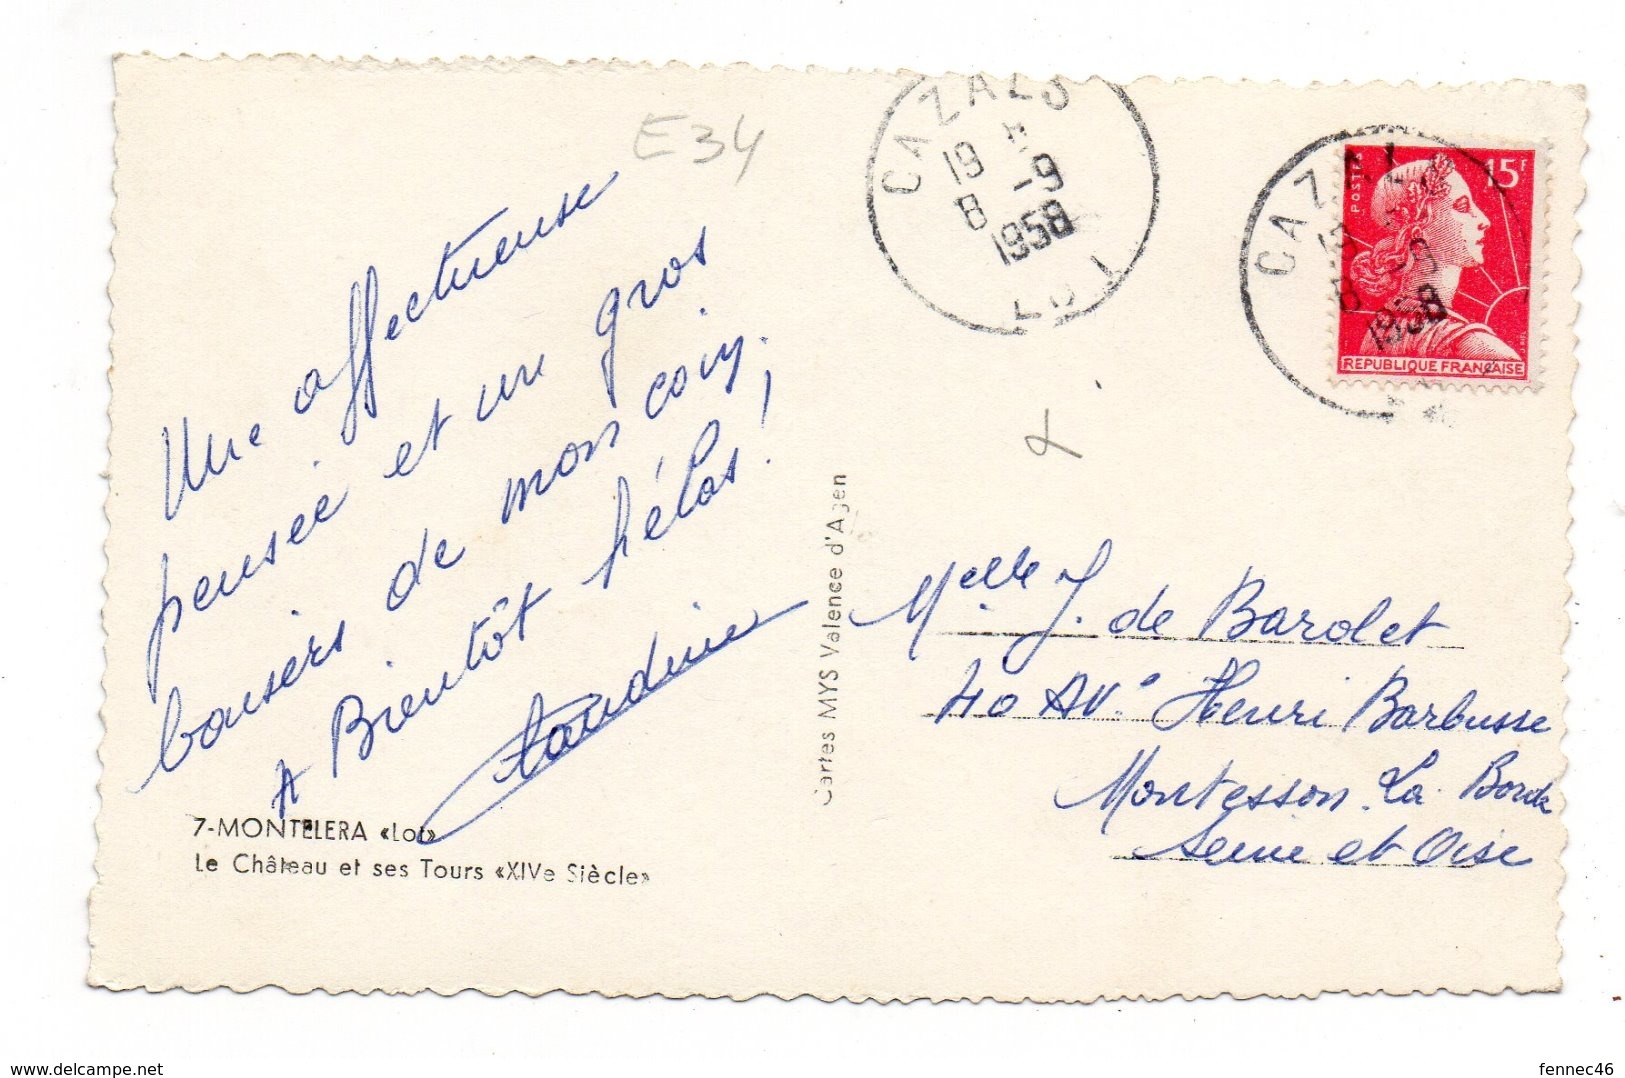 E34
Une affectueuse
pensée et un gros
baisers de mon coin.
A Bientôt hélas!
Claudine
7-MONTELERA «Lot»
Le Château et ses Tours «XIVe Siècle»
Cartes MYS Valence d'Agen
CAZALS
19 H
8 -9
1958
LOT
CAZALS
19 H
8 -9
1958
POSTES
15F
REPUBLIQUE FRANÇAISE
Melle J. de Barolet
40 AVe Henri Barbusse
Montesson. La Borde
Seine et Oise
delcampe.net
fennec46